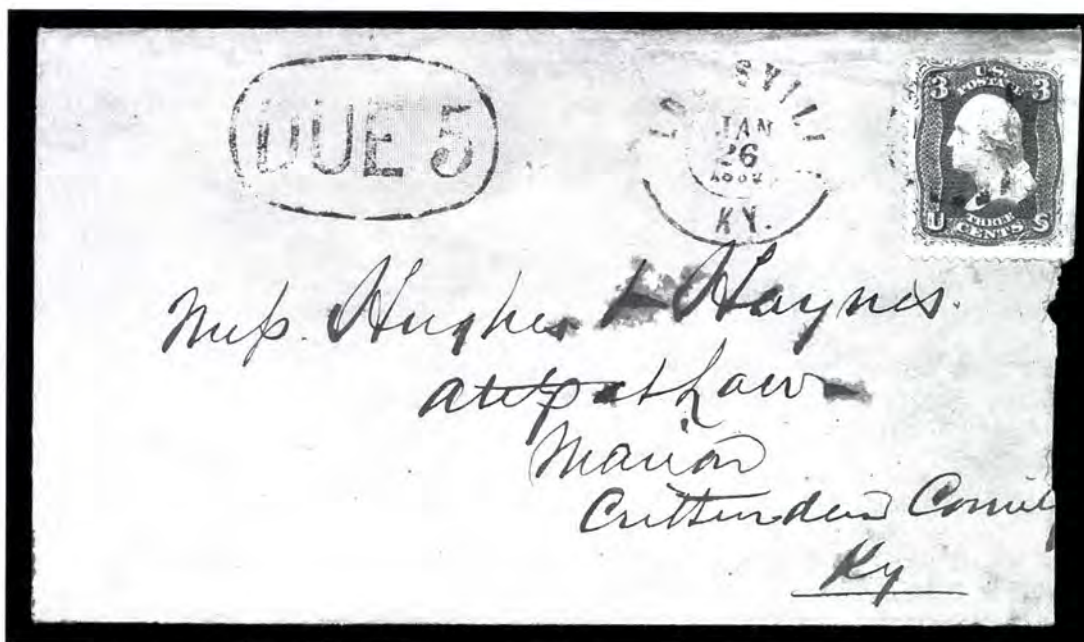 DUE 5
LOUISVILL
JAN
26
KY.
3 U.S. 3
POSTAGE
U THREE S
CENTS
Mess. Hughes & Haynes.
attys at Law
Marion
Crittenden County
Ky